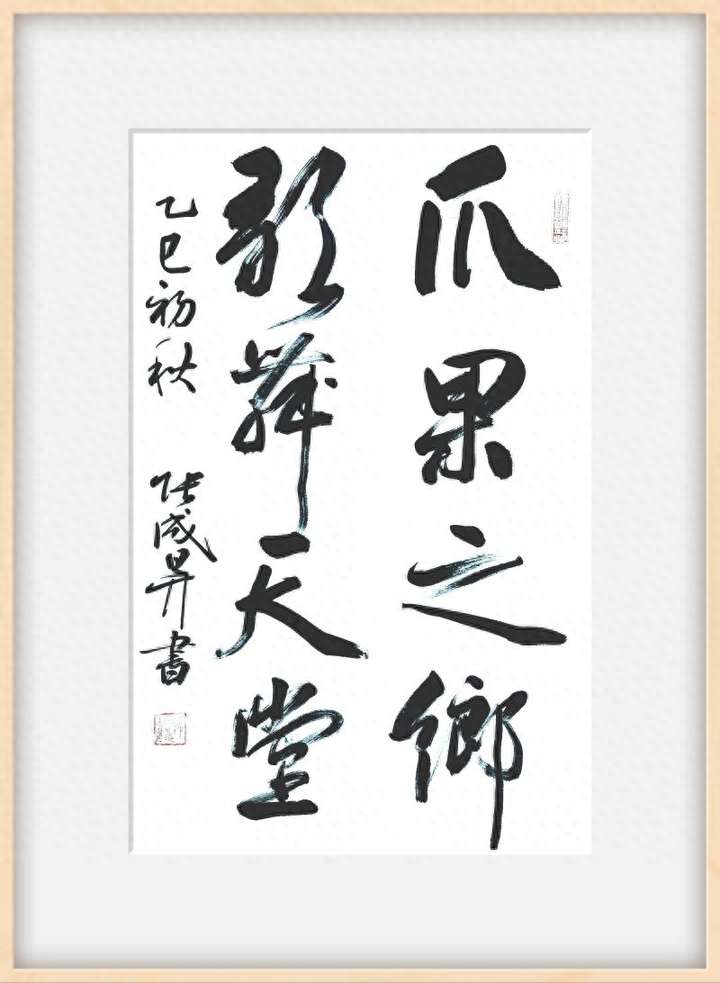 瓜果之鄉
歌舞天堂
乙巳初秋 张成昇書